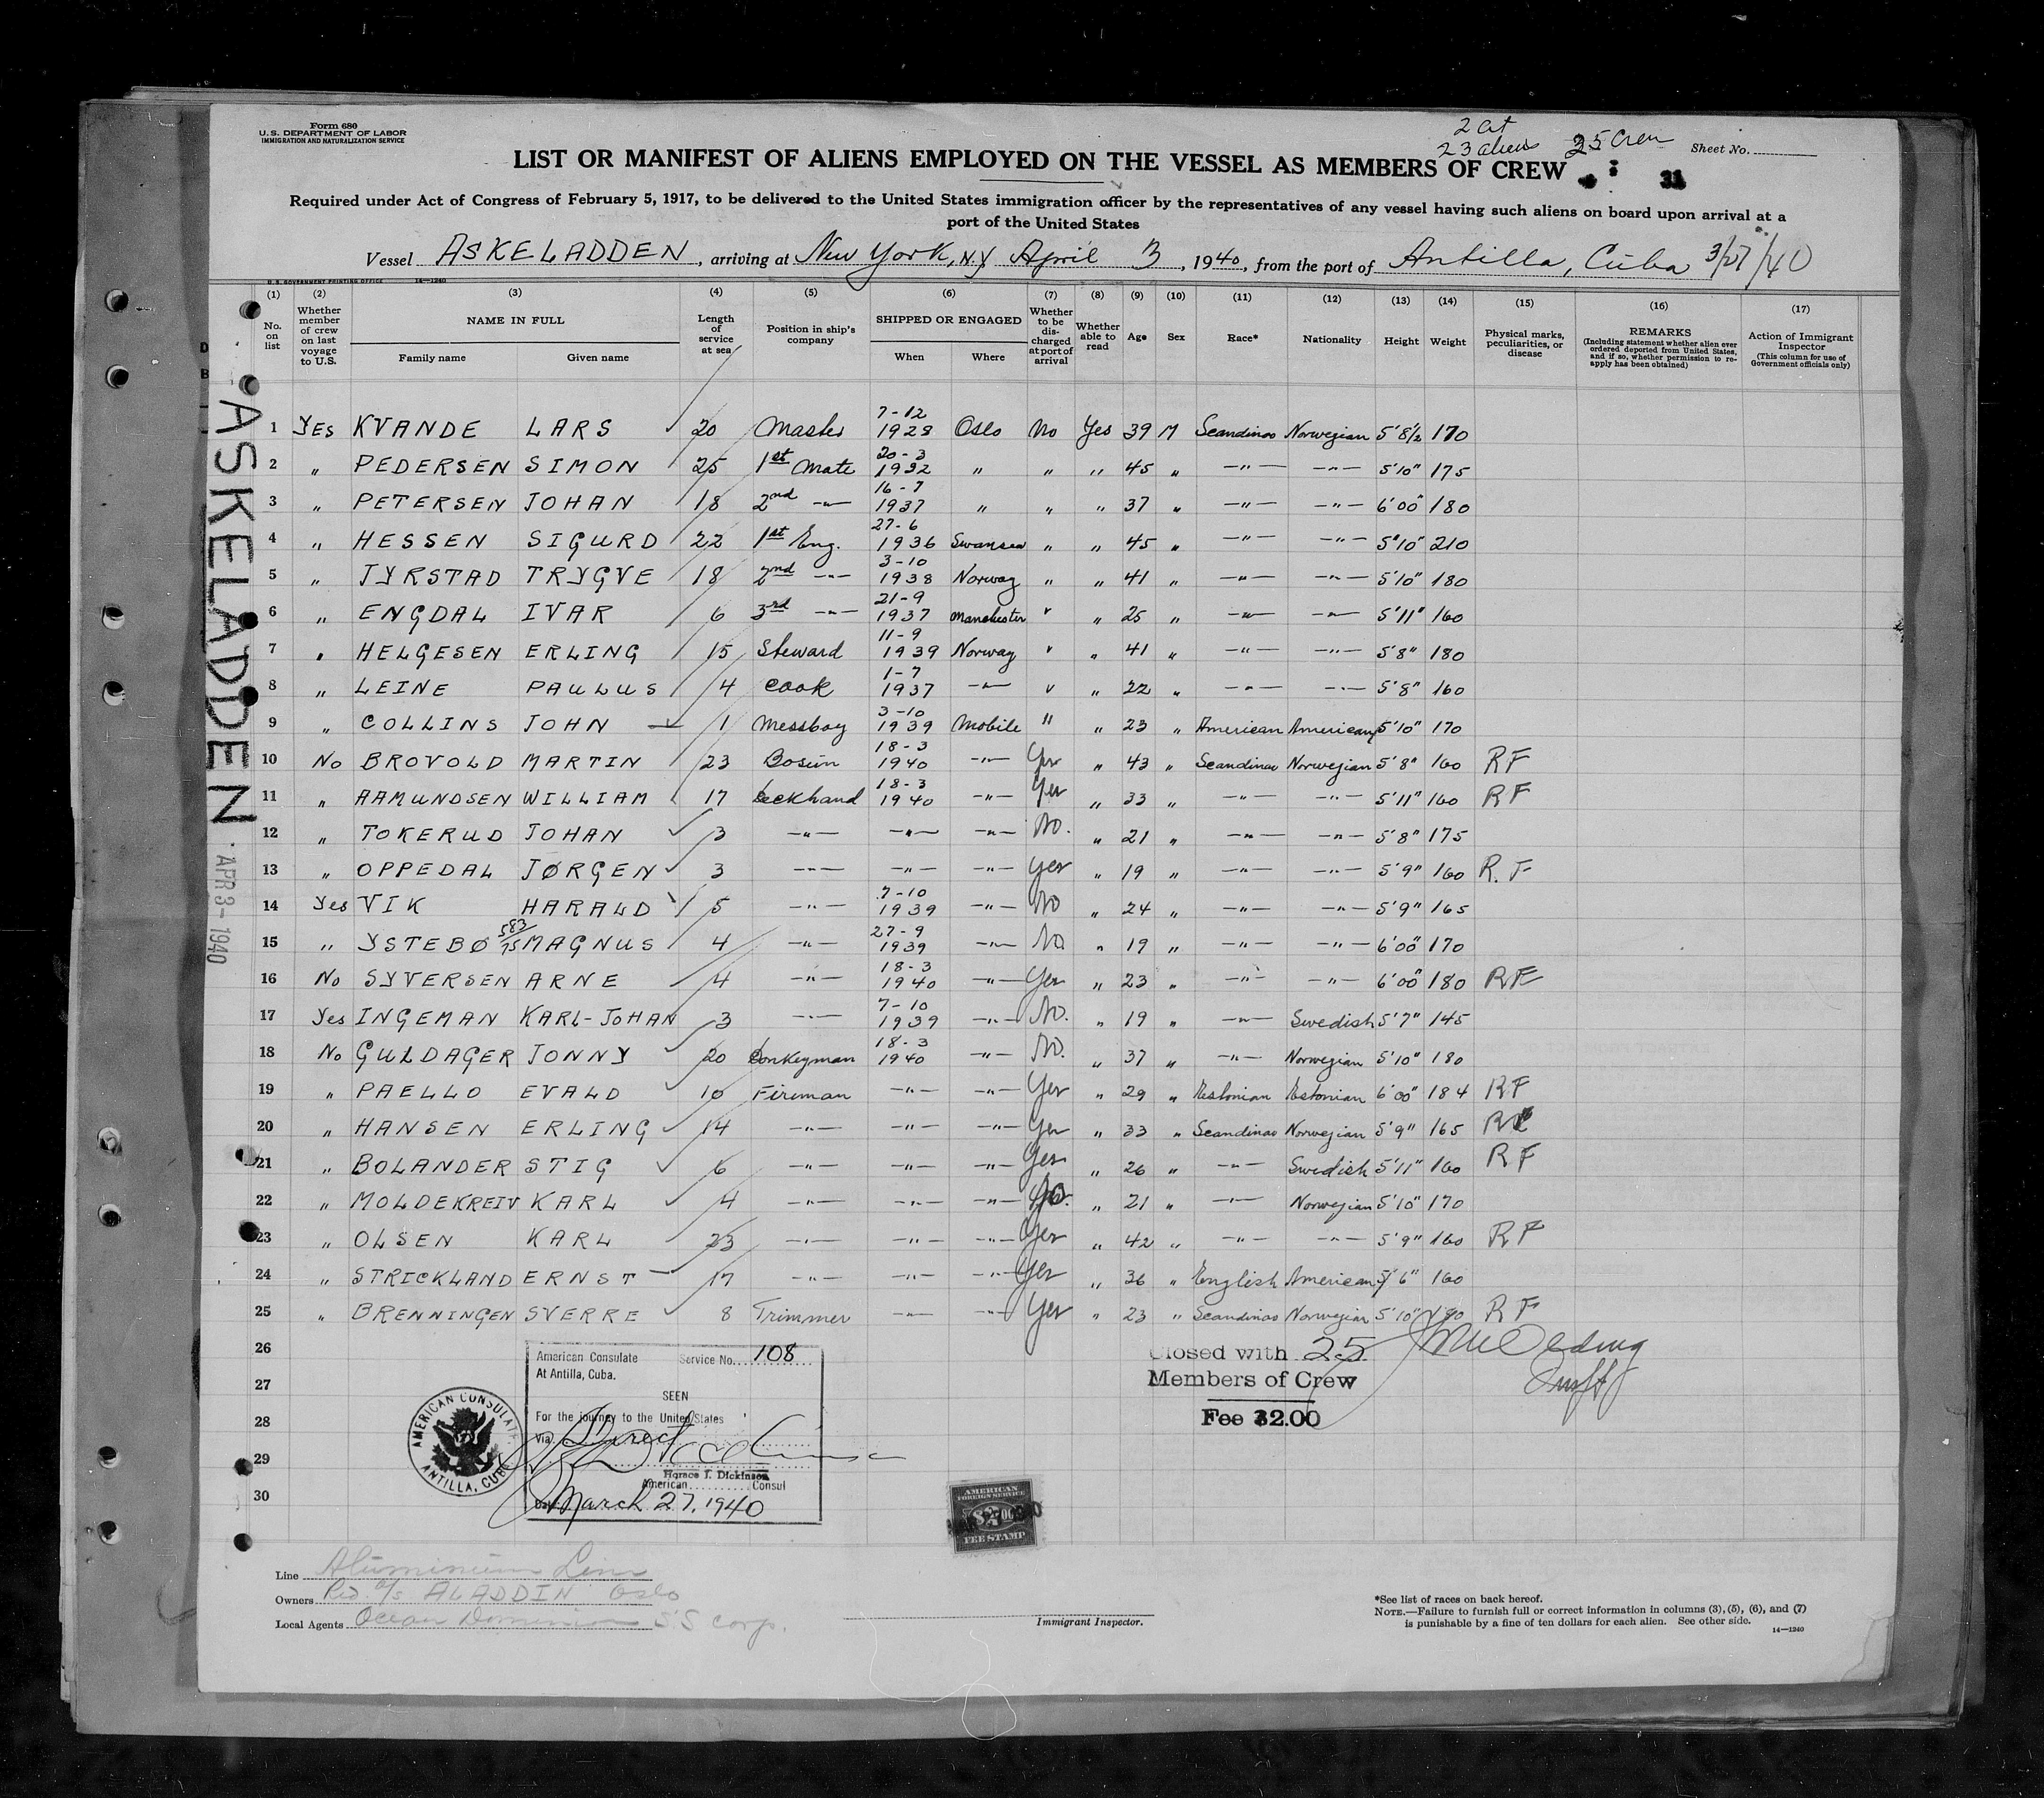 Form 680
U. S. DEPARTMENT OF LABOR
IMMIGRATION AND NATURALIZATION SERVICE
2 cit
23 aliens 25 Crew Sheet No.
LIST OR MANIFEST OF ALIENS EMPLOYED ON THE VESSEL AS MEMBERS OF CREW
31
Required under Act of Congress of February 5, 1917, to be delivered to the United States immigration officer by the representatives of any vessel having such aliens on board upon arrival at a
port of the United States
Vessel ASKELADDEN, arriving at New York, N.Y. April 3, 1940, from the port of Antilla, Cuba 3/27/40
U. S. GOVERNMENT PRINTING OFFICE 14—1240
(1) (2) (3) (4) (5) (6) (7) (8) (9) (10) (11) (12) (13) (14) (15) (16) (17)
No. on list
Whether member of crew on last voyage to U.S.
NAME IN FULL
Family name Given name
Length of service at sea
Position in ship's company
SHIPPED OR ENGAGED
When Where
Whether to be discharged at port of arrival
Whether able to read
Age Sex Race* Nationality Height Weight
Physical marks, peculiarities, or disease
REMARKS
(Including statement whether alien ever ordered deported from United States, and if so, whether permission to reapply has been obtained)
Action of Immigrant Inspector
(This column for use of Government officials only)
ASKELADDEN
APR 3 - 1940
1 Yes KVANDE LARS 20 Master 7-12 1928 Oslo No Yes 39 M Scandinav Norwegian 5'8½ 170
2 " PEDERSEN SIMON 25 1st Mate 20-3 1932 " " " 45 " —"— —"— 5'10" 175
3 " PETERSEN JOHAN 18 2nd —"— 16-7 1937 " " " 37 " —"— —"— 6'00" 180
4 " HESSEN SIGURD 22 1st Eng. 27-6 1936 Swansea " " 45 " —"— —"— 5'10" 210
5 " TYRSTAD TRYGVE 18 2nd —"— 3-10 1938 Norway " " 41 " —"— —"— 5'10" 180
6 " ENGDAL IVAR 6 3rd —"— 21-9 1937 Manchester " " 25 " —"— —"— 5'11" 160
7 " HELGESEN ERLING 15 Steward 11-9 1939 Norway " " 41 " —"— —"— 5'8" 180
8 " LEINE PAULUS 4 Cook 1-7 1937 —"— " " 22 " —"— —"— 5'8" 160
9 " COLLINS JOHN 1 Messboy 3-10 1939 Mobile " " 23 " American American 5'10" 170
10 No BROVOLD MARTIN 23 Bosun 18-3 1940 —"— Yes " 43 " Scandinav Norwegian 5'8" 160 RF
11 " AAMUNDSEN WILLIAM 17 Deckhand 18-3 1940 —"— Yes " 33 " —"— —"— 5'11" 160 RF
12 " TOKERUD JOHAN 3 —"— —"— —"— No. " 21 " —"— —"— 5'8" 175
13 " OPPEDAL JØRGEN 3 —"— —"— —"— Yes " 19 " —"— —"— 5'9" 160 R.F
14 Yes VIK HARALD 5 —"— 7-10 1939 —"— No " 24 " —"— —"— 5'9" 165
15 " YSTEBØ 583/75 MAGNUS 4 —"— 27-9 1939 —"— No " 19 " —"— —"— 6'00" 170
16 No SYVERSEN ARNE 4 —"— 18-3 1940 —"— Yes " 23 " —"— —"— 6'00" 180 RF
17 Yes INGEMAN KARL-JOHAN 3 —"— 7-10 1939 —"— No. " 19 " —"— Swedish 5'7" 145
18 No GULDAGER JONNY 20 Donkeyman 18-3 1940 —"— No. " 37 " —"— Norwegian 5'10" 180
19 " PAELLO EVALD 10 Fireman —"— —"— Yes " 29 " Estonian Estonian 6'00" 184 RF
20 " HANSEN ERLING 14 —"— —"— —"— Yes " 33 " Scandinav Norwegian 5'9" 165 RF
21 " BOLANDER STIG 6 —"— —"— —"— Yes " 26 " —"— Swedish 5'11" 160 RF
22 " MOLDEKREIV KARL 4 —"— —"— —"— No. " 21 " —"— Norwegian 5'10" 170
23 " OLSEN KARL 23 —"— —"— —"— Yes " 42 " —"— —"— 5'9" 160 RF
24 " STRICKLAND ERNST 17 —"— —"— —"— Yes " 36 " English American 5'6" 160
25 " BRENNINGEN SVERRE 8 Trimmer —"— —"— Yes " 23 " Scandinav Norwegian 5'10" 190 RF
26
27
28
29
30
American Consulate Service No. 108
At Antilla, Cuba.
SEEN
For the journey to the United States
Via Direct
Horace J. Dickinson
American Consul
Date March 27, 1940
AMERICAN CONSULATE
ANTILLA, CUBA
Closed with 25
Members of Crew
Fee $2.00
AMERICAN
FOREIGN SERVICE
$2.00
FEE STAMP
Line Aluminium Line
Owners Red. A/S ALADDIN Oslo
Local Agents Ocean Dominion S.S Corp.
Immigrant Inspector.
*See list of races on back hereof.
NOTE.—Failure to furnish full or correct information in columns (3), (5), (6), and (7)
is punishable by a fine of ten dollars for each alien. See other side.
14—1240